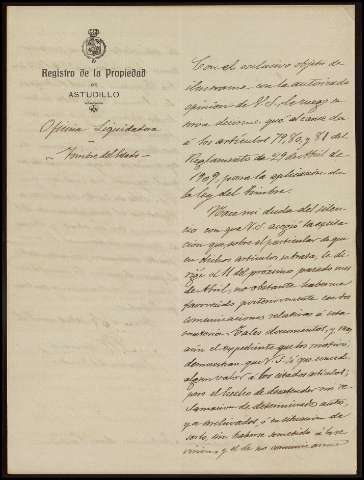 Registro de la Propiedad
DE
ASTUDILLO
Oficina Liquidadora
Timbre del Estado
Con el exclusivo objeto de
ilustrarme con la autorizada
opinion de V.S., le ruego se
sirva decirme que alcance da
á los artículos 79, 80, y 81 del
Reglamento de 29 de Abril de
1909, para la aplicación de
la ley del timbre.
Nace mi duda del silen-
cio con que V.S. acogió la
que, sobre el particular de que
en dichos artículos se trata, le di-
rigí el 11 del próximo pasado mes
de Abril, no obstante haberme
favorecido posteriormente con tres
comunicaciones relativas á esta
materia. Tales documentos, y
aún el expediente que los motivó,
demuestran que V.S. que concede
algun valor á los citados artículos;
pero el hecho de desatender mi re-
clamación de determinados autos,
ya archivados, ó en situación de
serlo, sin haberse sometido á la re-
visión, y el de no comunicarme